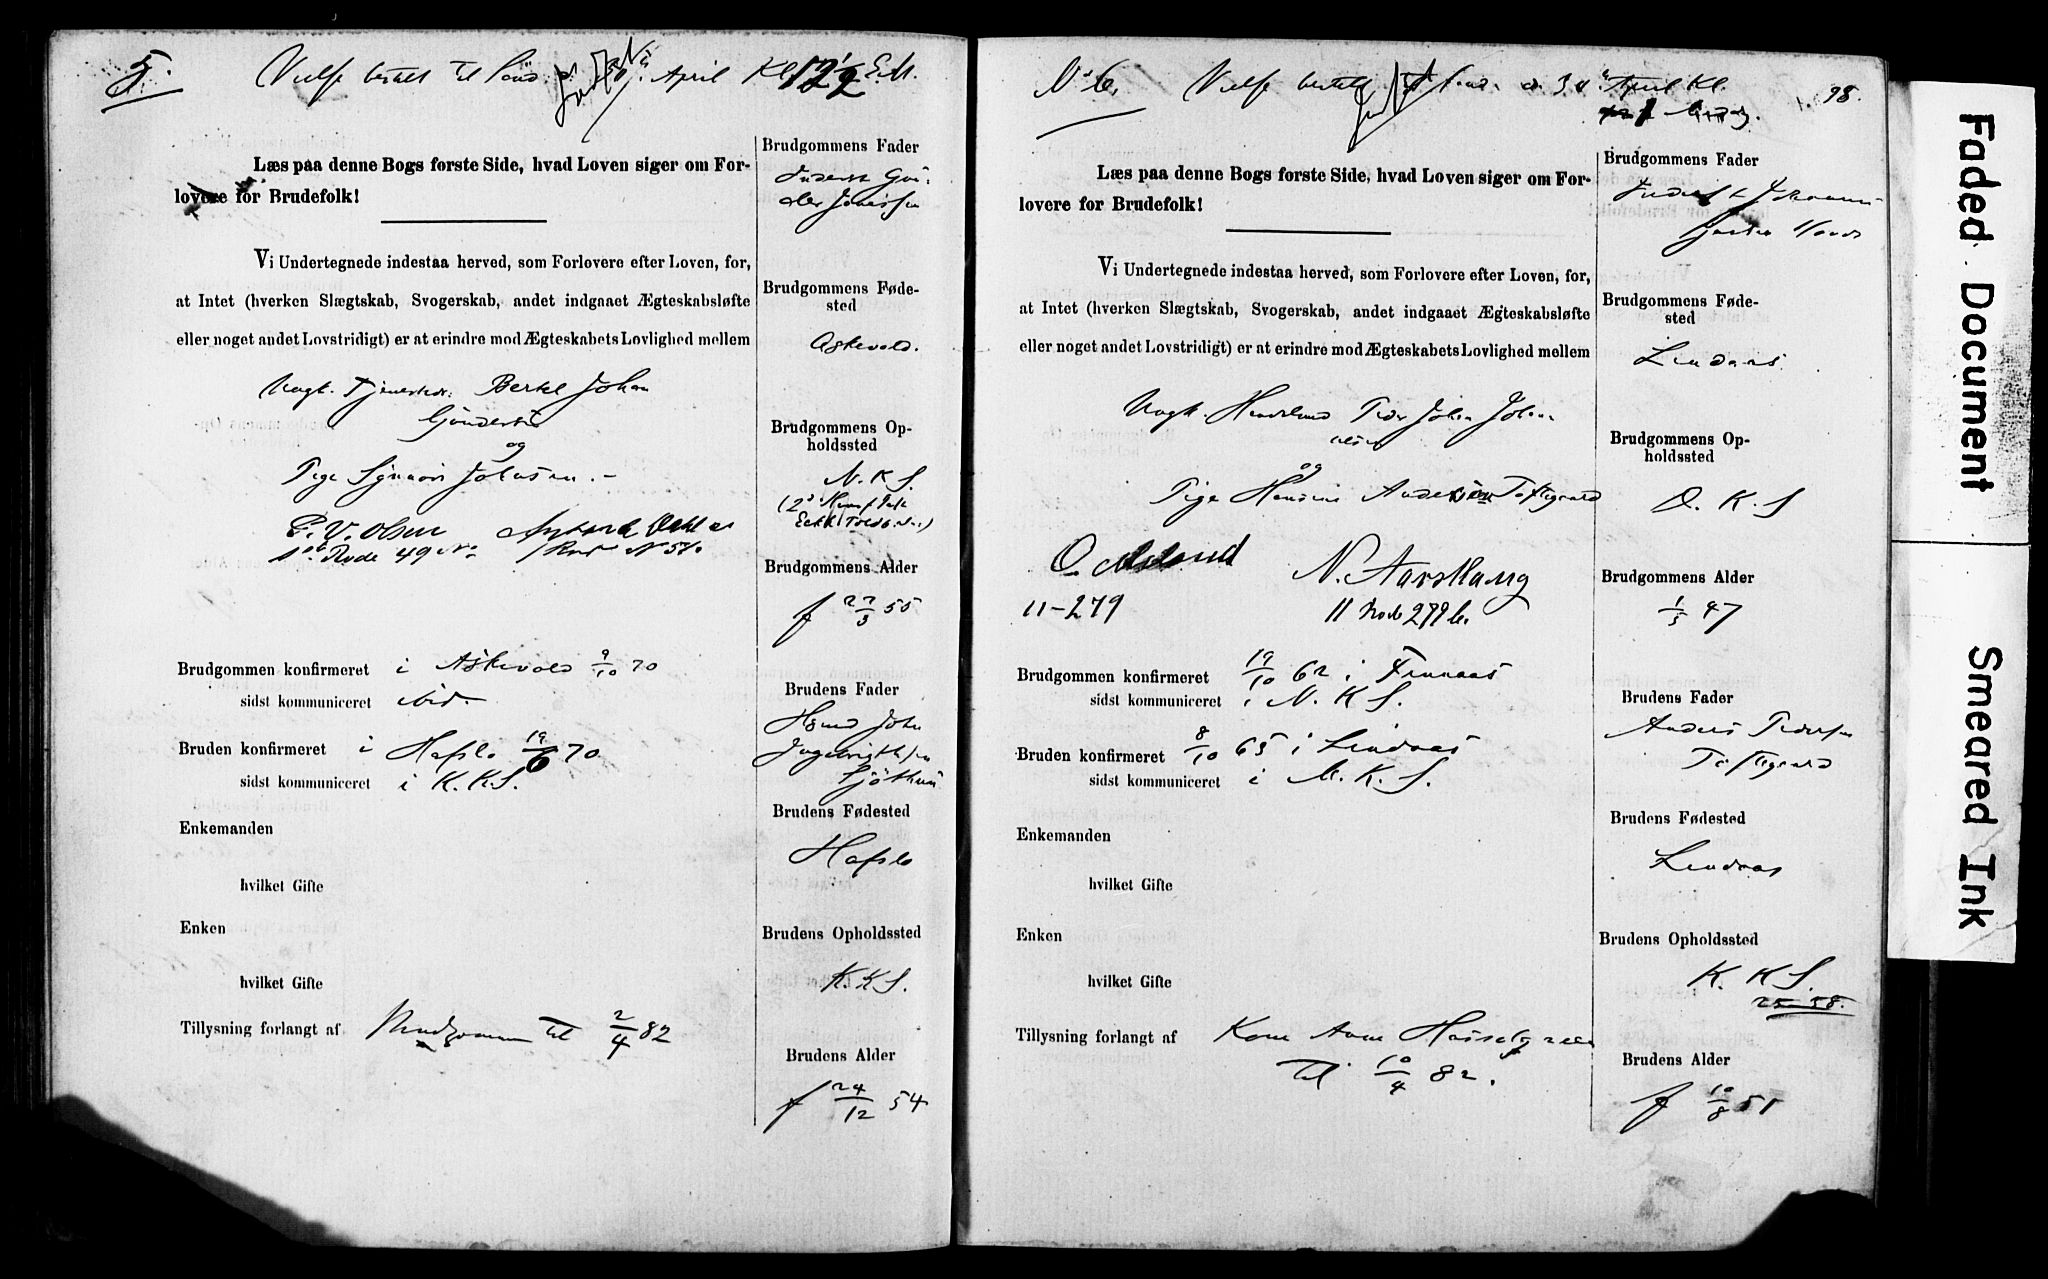 5.
Vielse bestilt til April Kl 12 1/2 E.M.
Læs paa denne Bogs første Side, hvad Loven siger om For-
lovere for Brudefolk!
Vi Undertegnede indestaa herved, som Forlovere efter Loven, for,
at Intet (hverken Slægtskab, Svogerskab, andet indgaaet Ægteskabsløfte
eller noget andet Lovstridigt) er at erindre mod Ægteskabets Lovlighed mellem
Ungk. Bertel Johan
og
Pige Johnsen.
P. V. Olsen
Rode 49
Brudgommen konfirmeret i Askevold 9/10 70
sidst kommuniceret ibid.
Bruden konfirmeret i Hafslo 19/6 70
sidst kommuniceret i K.K.S.
Enkemanden
hvilket Gifte
Enken
hvilket Gifte
Tillysning forlangt af Brudgommen til 2/4 82
Brudgommens Fader
Brudgommens Føde-
sted
Askevold.
Brudgommens Op-
holdssted
N.K.S.
Brudgommens Alder
f 22/3 55
Brudens Fader
John
Brudens Fødested
Hafslo
Brudens Opholdssted
K.K.S.
Brudens Alder
f 24/12 54
No 6. Vielse bestilt 30 April Kl. 98.
Læs paa denne Bogs første Side, hvad Loven siger om For-
lovere for Brudefolk!
Vi Undertegnede indestaa herved, som Forlovere efter Loven, for,
at Intet (hverken Slægtskab, Svogerskab, andet indgaaet Ægteskabsløfte
eller noget andet Lovstridigt) er at erindre mod Ægteskabets Lovlighed mellem
Ungk. Peder Johan Johan-
og
Pige Toftegaard
N. Aarskaug
11-279 11 Rode 279 b.
Brudgommen konfirmeret 19/10 62 i Finnaas
sidst kommuniceret i N.K.S.
Bruden konfirmeret 8/10 65 i Lindaas
sidst kommuniceret i N.K.S.
Enkemanden
hvilket Gifte
Enken
hvilket Gifte
Tillysning forlangt af Kone
til 10/4 82.
Brudgommens Fader
Brudgommens Føde-
sted
Lindaas
Brudgommens Op-
holdssted
D.K.S
Brudgommens Alder
1/5 47
Brudens Fader
Anders Pedersen
Toftegaard
Brudens Fødested
Lindaas
Brudens Opholdssted
K.K.S.
25-58.
Brudens Alder
f 10/8 51
Faded Document
Smeared Ink